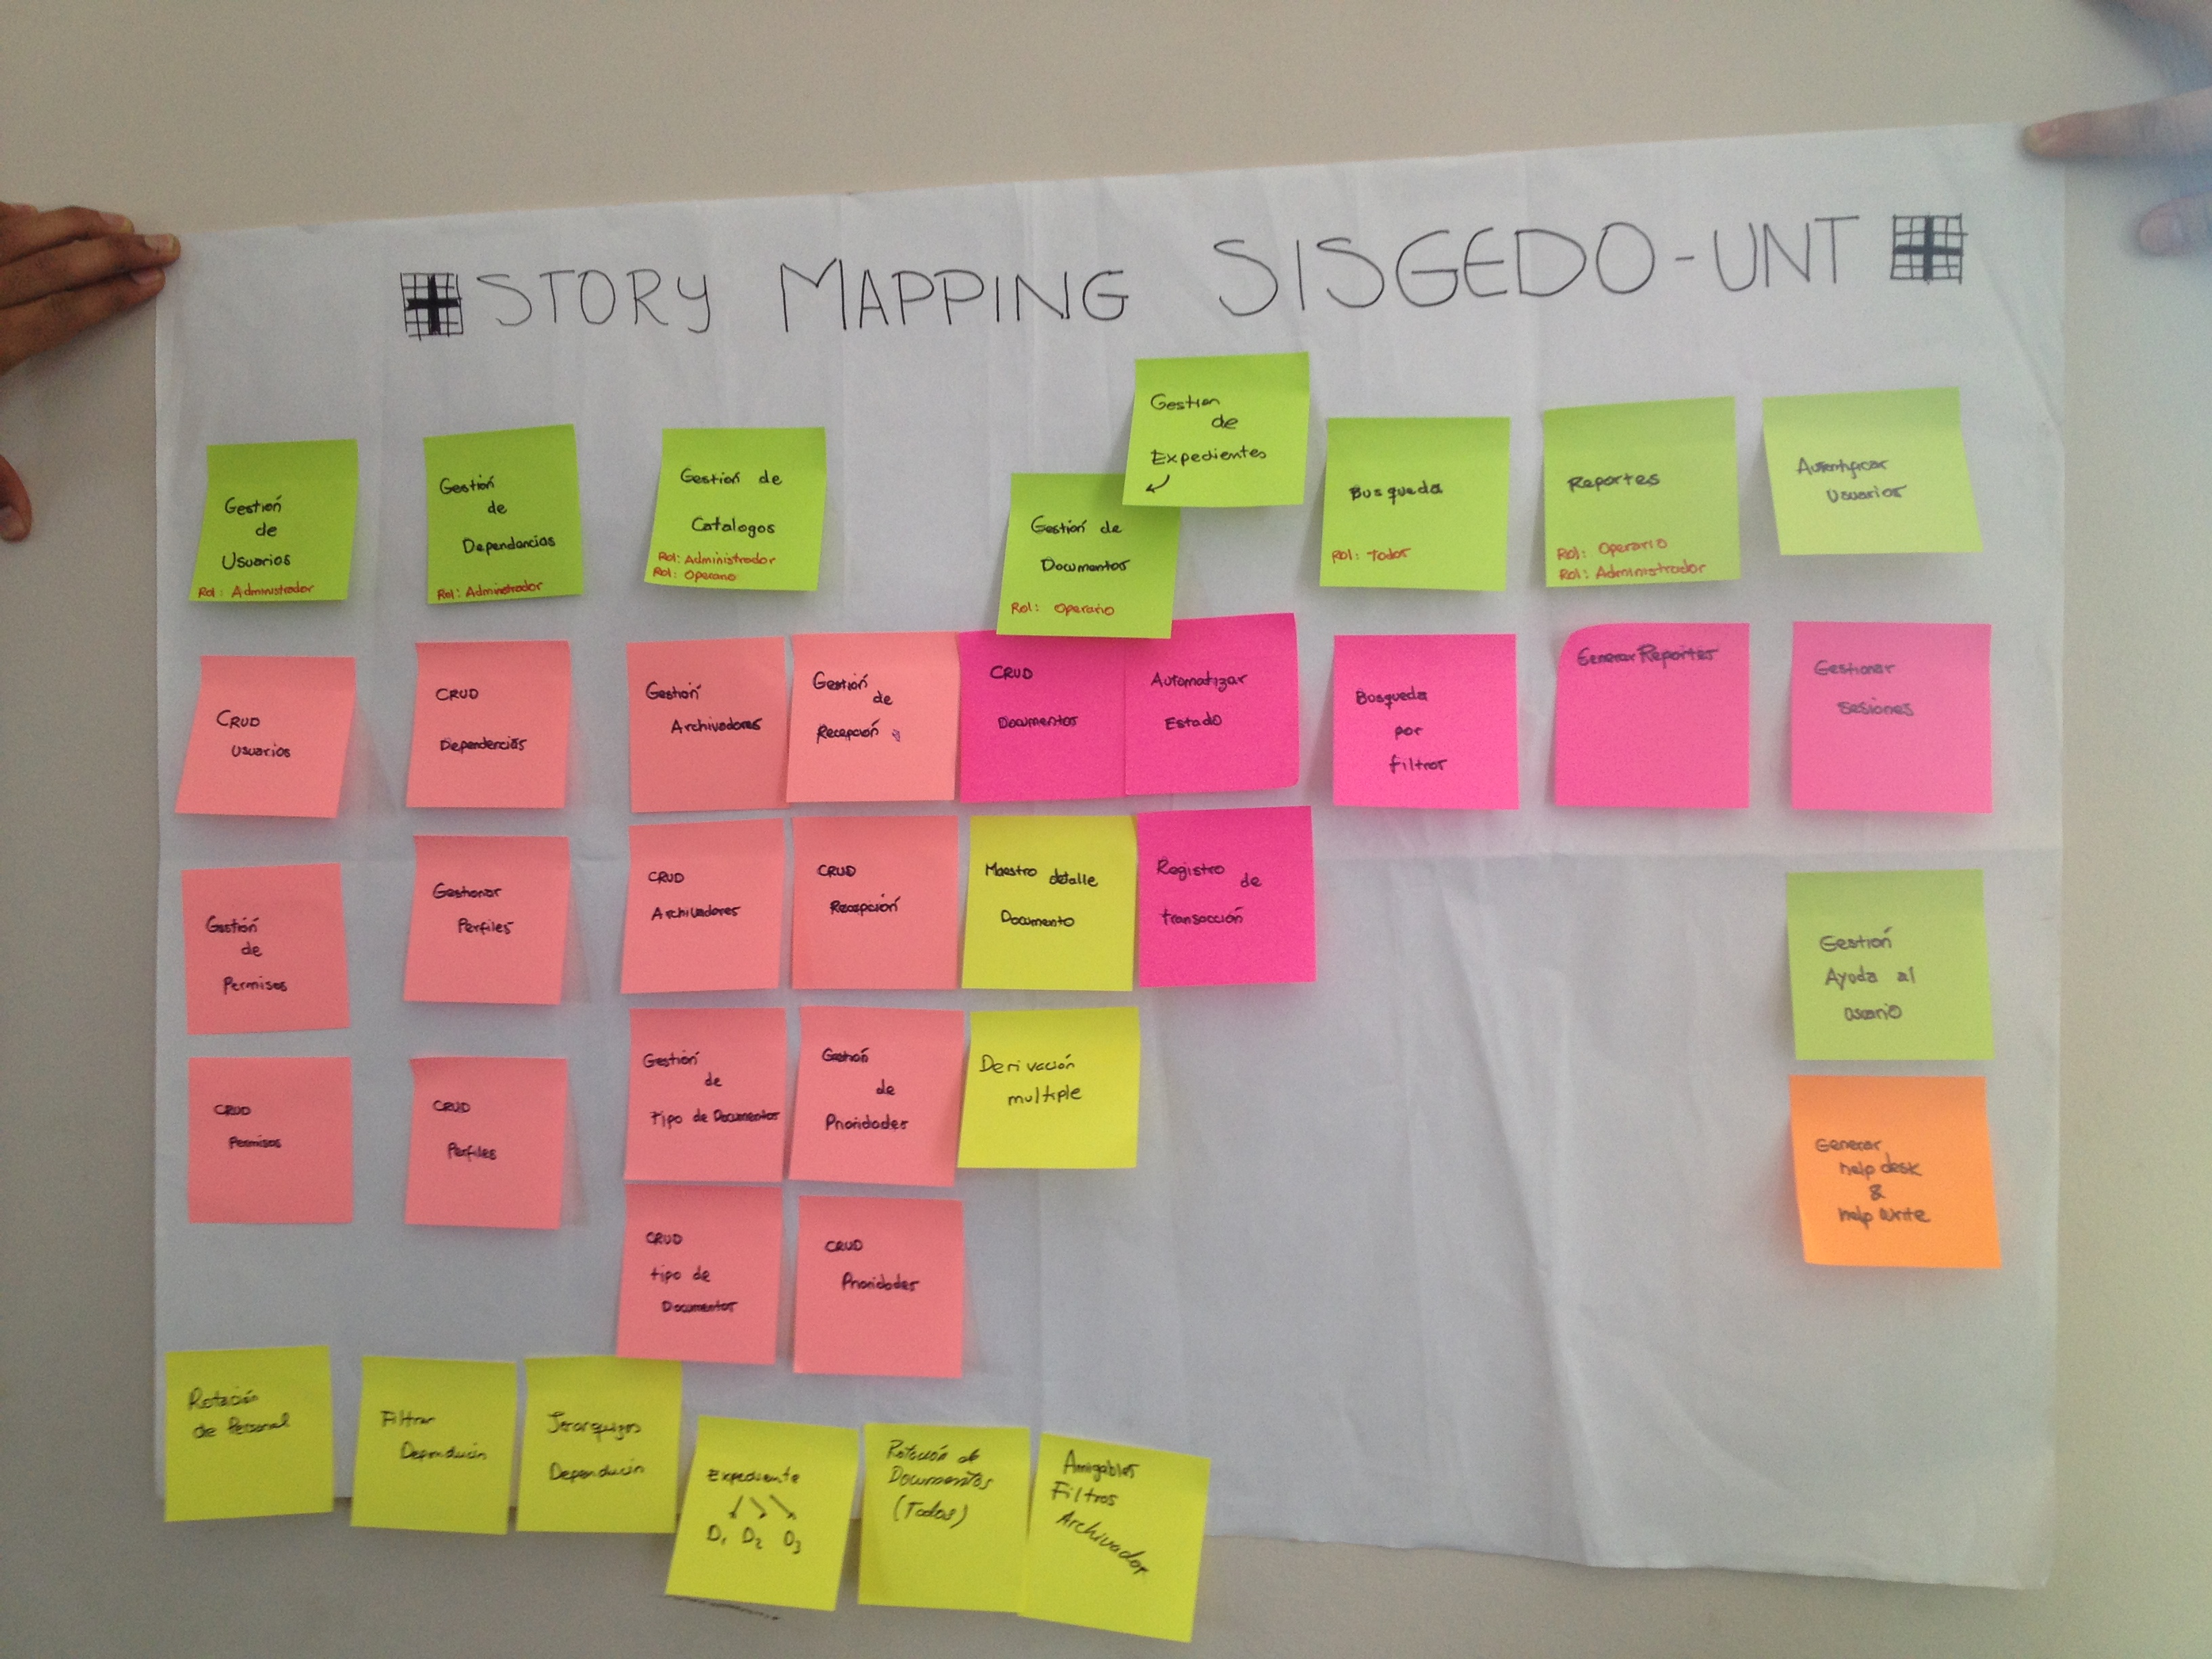 STORY MAPPING SISGEDO-UNT
Gestión
de
Usuarios
Rol: Administrador
Gestión
de
Dependencias
Rol: Administrador
Gestión de
Catalogos
Rol: Administrador
Rol: Operario
Gestión de
Documentos
Rol: Operario
Gestion
de
Expedientes
Busqueda
Rol: Todos
Reportes
Rol: Operario
Rol: Administrador
Autentificar
Usuarios
CRUD
Usuarios
CRUD
Dependencias
Gestión
Archivadores
Gestión
de
Recepción
CRUD
Documentos
Automatizar
Estado
Busqueda
por
filtros
Generar Reportes
Gestionar
Sesiones
Gestión
de
Permisos
Gestionar
Perfiles
CRUD
Archivadores
CRUD
Recepción
Maestro detalle
Documento
Registro
de
transacción
Gestión
Ayuda al
usuario
CRUD
Permisos
CRUD
Perfiles
Gestión
de
Tipo de Documentos
Gestión
de
Prioridades
Derivación
multiple
Generar
help desk
&
help write
CRUD
tipo de
Documentos
CRUD
Prioridades
Rotación
de Personal
Filtrar
Jerarquizas
Expediente
D1 D2 D3
Rotación de
Documentos
(Todos)
Amigables
Filtros
Archivador